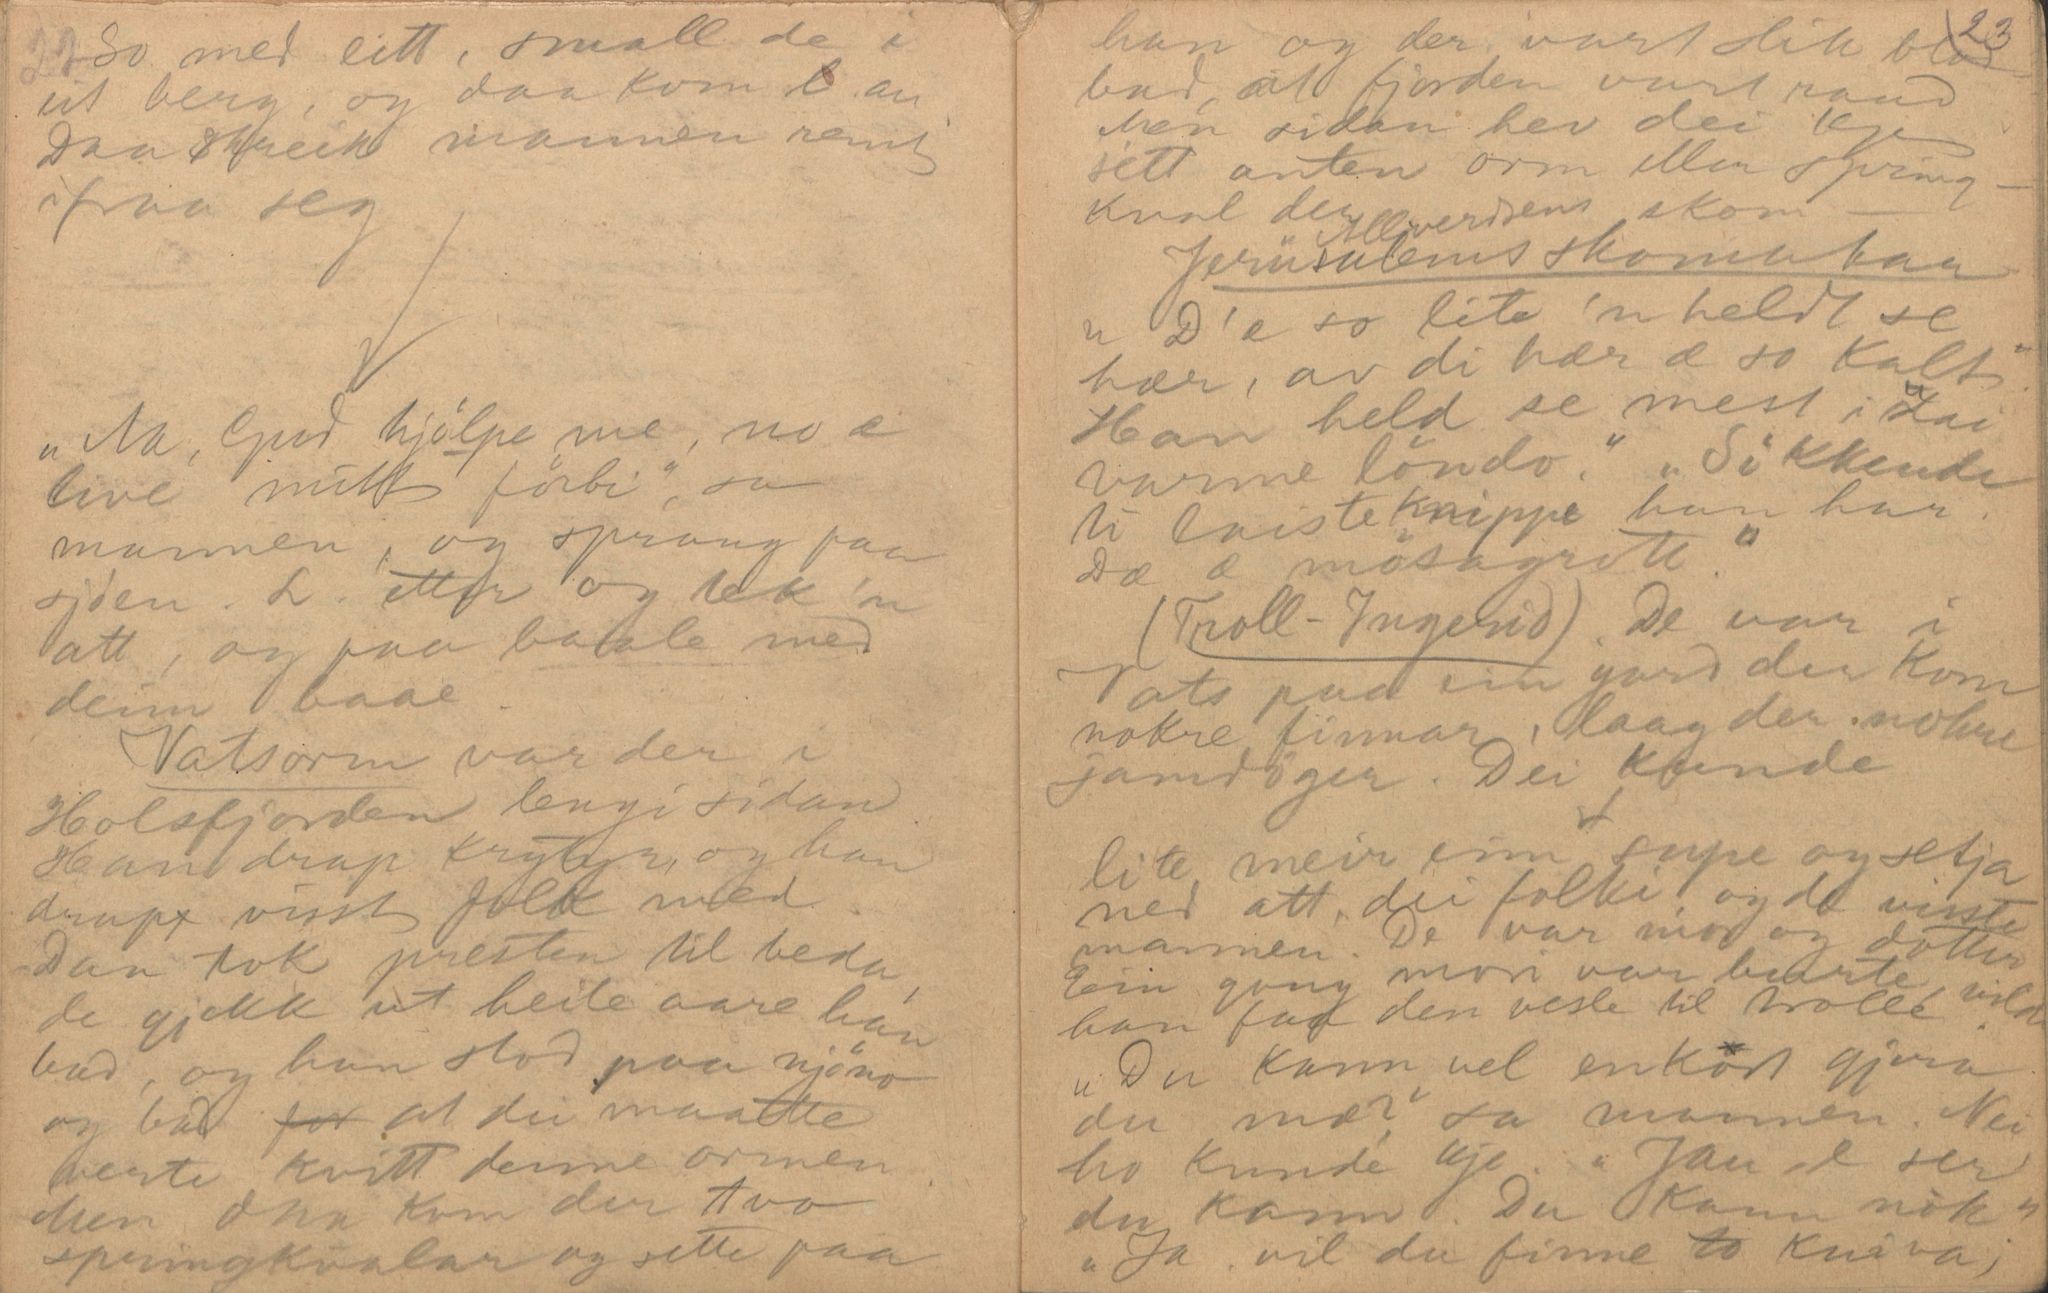 22
So med eitt, small de i
eit berg, og daa kom L. au
Daa skreik mannen rent
ifraa seg
„Aa, Gud hjölpe me, no æ
live mitt förbi", sa
mannen, og sprang paa
sjöen. L. etter og tek 'n
att, og paa baale med
deim baae.
Vatsorm var der i
Holsfjorden lengi sidan
Han drap krytyr, og han
drap visst folk med.
Daa tok presten til beda,
de gjekk ut heile aare han
bad, og han stod paa njöno
og bad for at dei maatte
verte kvitt denne ormen.
Men daa kom der tvo
springkvalar og sette paa
23
han og der vart slik blod
bad, at fjorden vart raud
Men sidan hev dei kje
sett anten orm eller spring-
kval der.
Allverdsens skom
Jerusalems skomakar
„D'æ so lite 'n heldt se
hær, av di hær æ so kalt".
Han held se mest i "dai
varme löndo." „Sikkende
ti laisteknippe han har.
Dæ æ mosagrott."
(Troll-Ingerid). De var i
Vats paa ein gard der kom
nokre finnar, laag der nokre
jamdöger. Dei kunde
lite meir einn supe og setja
ned att, dei folki, og de visste
mannen. De var mor og dotter
Ein gong mori var burte, vilde
han faa den vesle til trolle.
„Du kann vel enkort gjera
du mæ?" sa mannen. Nei
ho kunde kje. „Jau e ser
du kann. Du kann nok"
„Ja vil du finne to kniva,